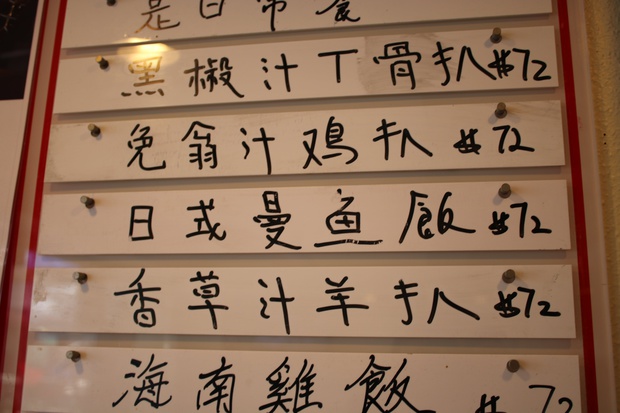 是日常餐
黑椒汁丁骨扒 $72
免翁汁鸡扒 $72
日式曼鱼飯 $72
香草汁羊扒 $72
海南雞飯 $72